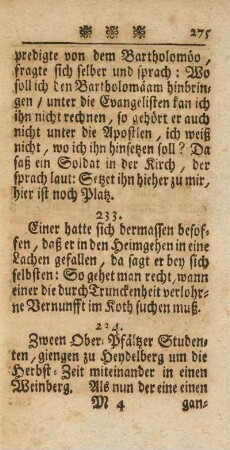 *** 275
predigte von dem Bartholomöo,
fragte sich selber und sprach: Wo
soll ich den Bartholomäam hinbrin-
gen/ unter die Evangelisten kan ich
ihn nicht rechnen, so gehört er auch
nicht unter die Apostlen, ich weiß
nicht, wo ich ihn hinsetzen soll? Da
saß ein Soldat in der Kirch, der
sprach laut: Setzet ihn hieher zu mir,
hier ist noch Platz.
233.
Einer hatte sich dermassen besof-
fen, daß er in den Heimgehen in eine
Lachen gefallen, da sagt er bey sich
selbsten: So gehet man recht, wann
einer die durch Trunckenheit verlohr-
ne Vernunfft im Koth suchen muß.
234.
Zween Ober-Pfältzer Studen-
ten, giengen zu Heydelberg um die
Herbst-Zeit miteinander in einen
Weinberg. Als nun der eine einen
M 4 gan-